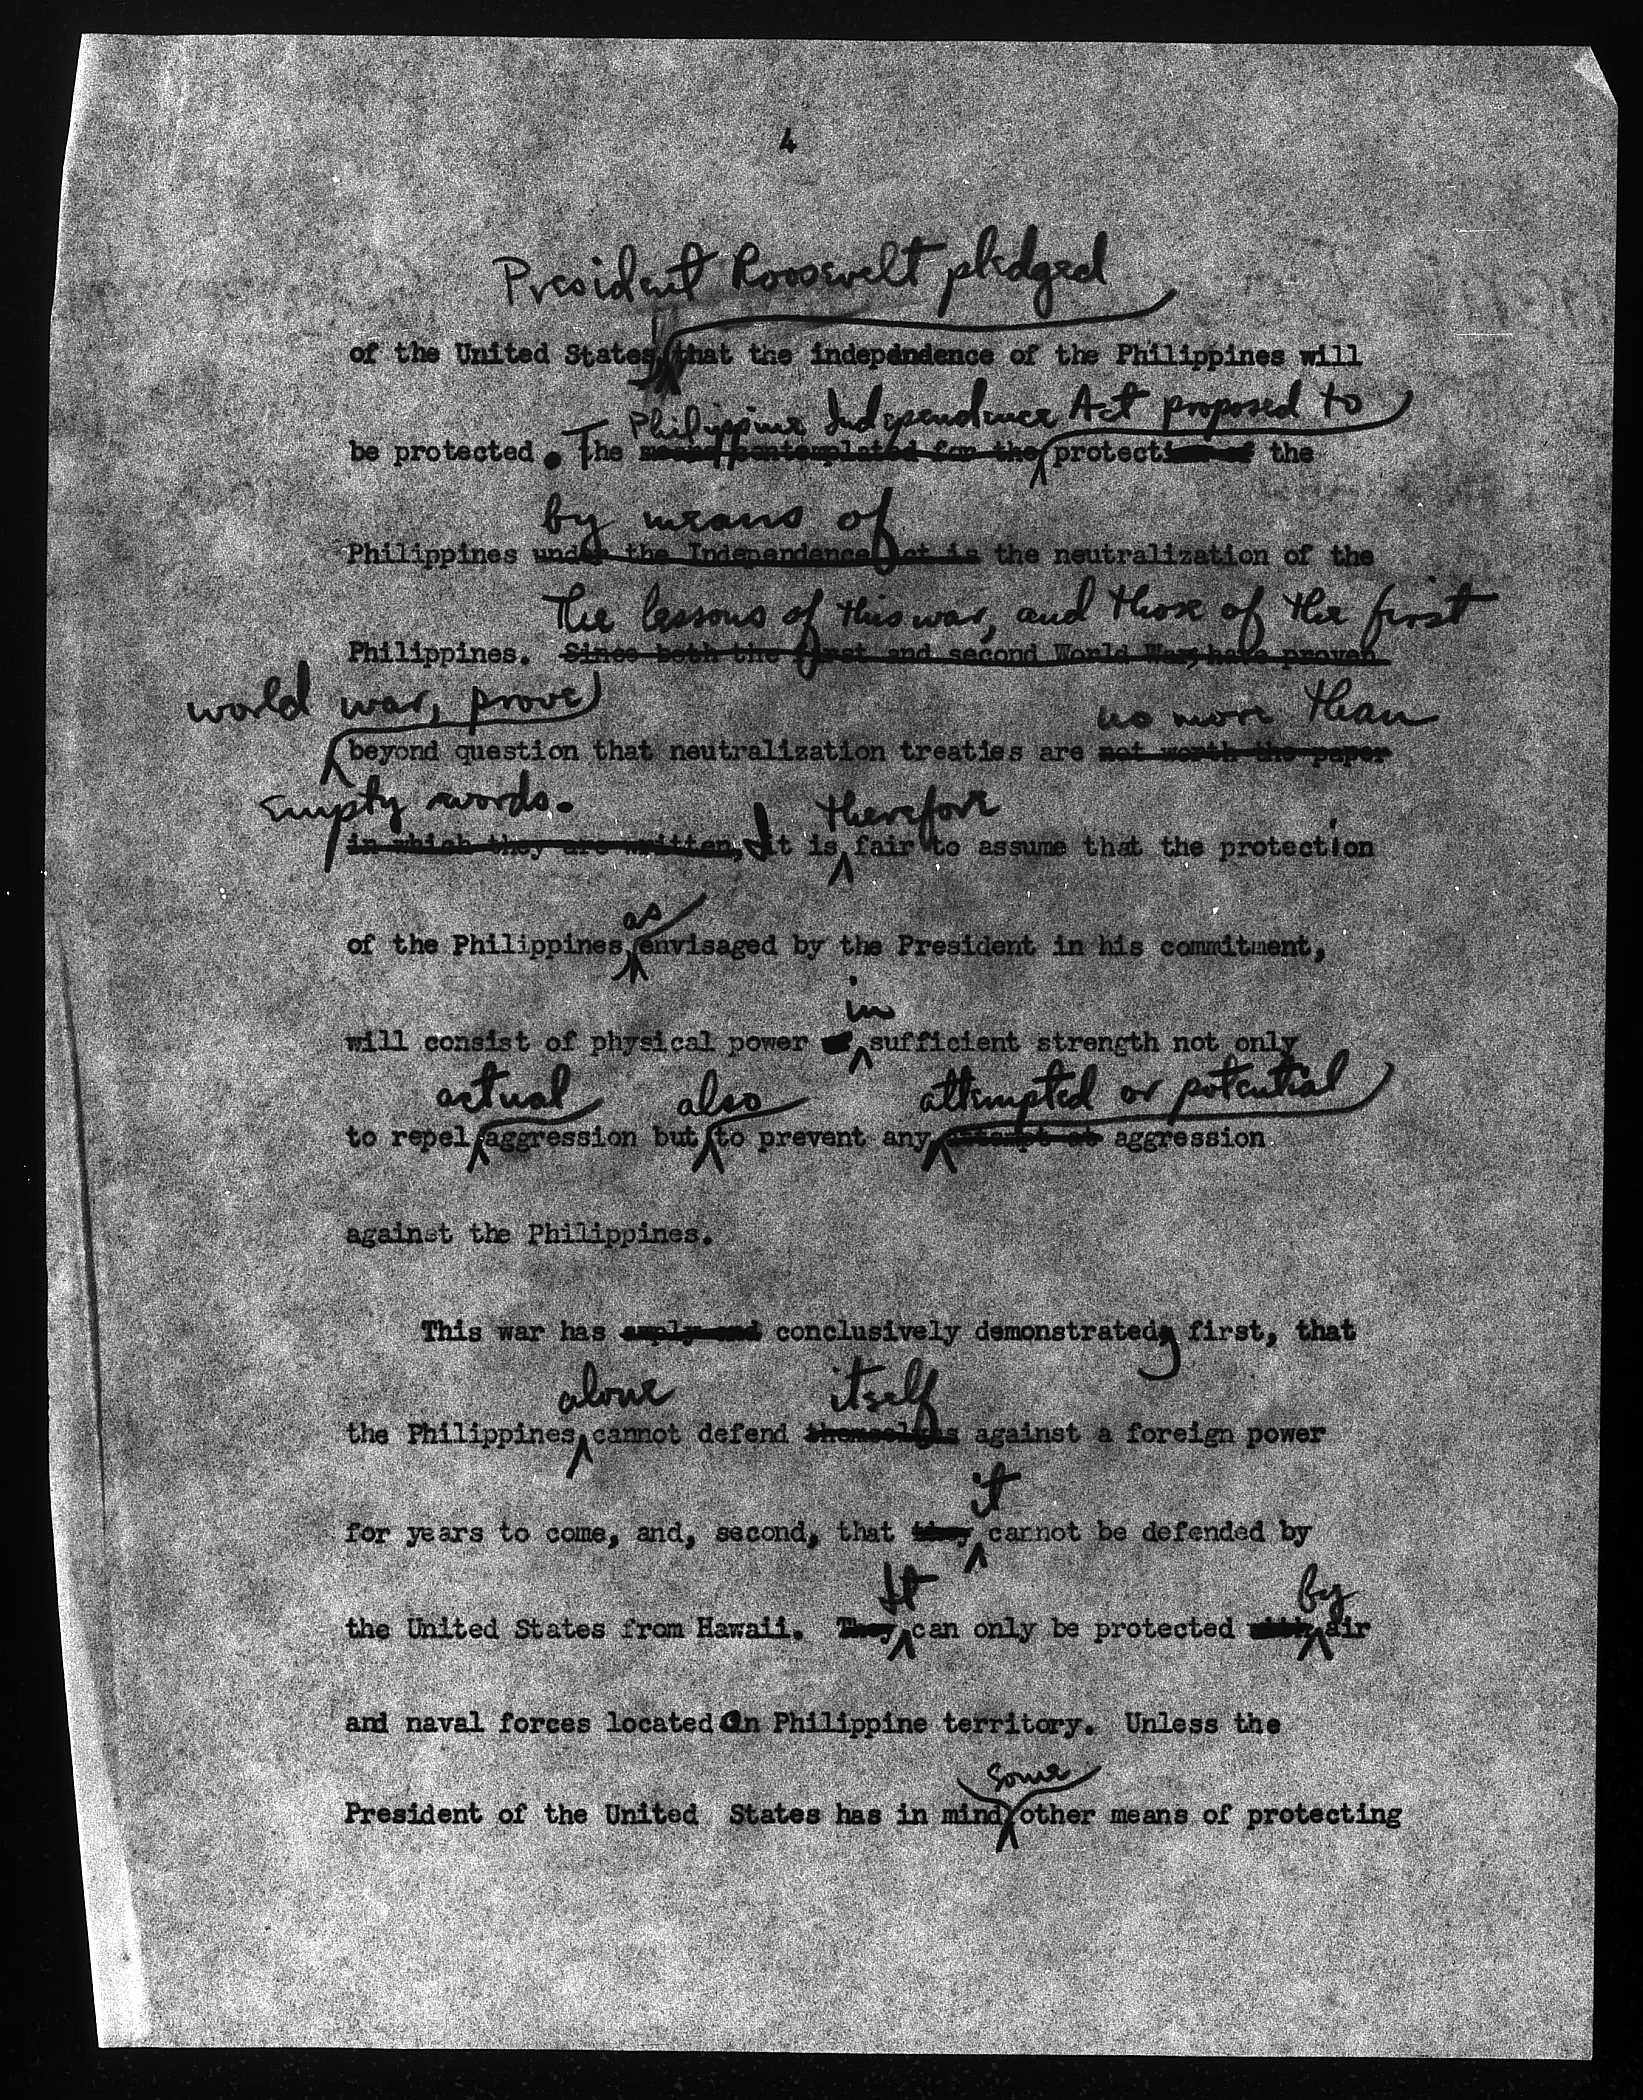 4
President Roosevelt pledged
of the United States, that the indepdndence of the Philippines will
Philippine Independence Act proposed to
be protected. The means contemplated for the protection of the
by means of
Philippines under the Independence Act is the neutralization of the
The lessons of this war, and those of the first
Philippines. Since both the first and second World War, have proven
world war, prove
no more than
beyond question that neutralization treaties are not worth the paper
empty words.
therefore
in which they are written, It is fair to assume that the protection
as
of the Philippines, envisaged by the President in his commitment,
in
will consist of physical power of sufficient strength not only
actual also attempted or potential
to repel aggression but to prevent any attempt at aggression
against the Philippines.
This war has amply and conclusively demonstrated, first, that
alone itself
the Philippines cannot defend themselves against a foreign power
it
for years to come, and, second, that they cannot be defended by
It by
the United States from Hawaii. They can only be protected with air
and naval forces located on Philippine territory. Unless the
some
President of the United States has in mind other means of protecting